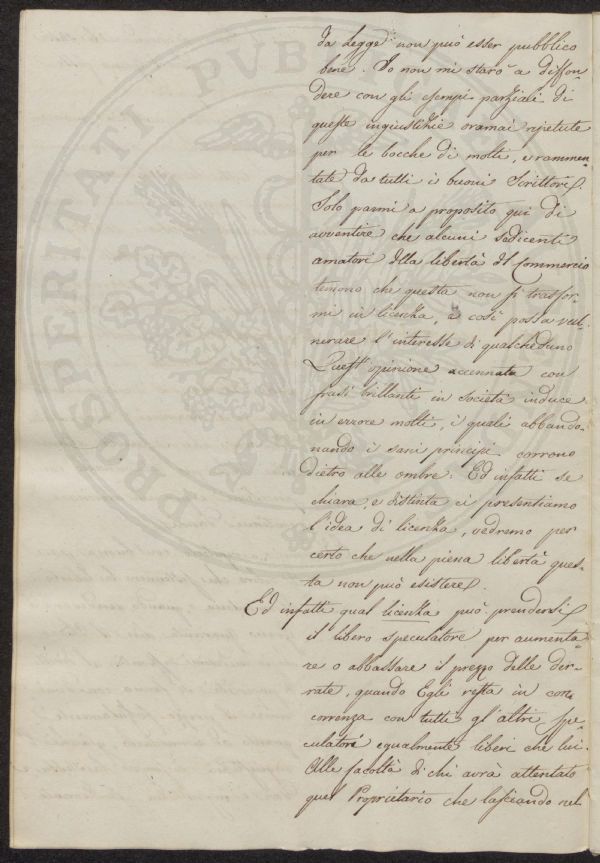 da Legge non può esser pubblico
bene. Io non mi starò a diffon
dere con gli esempi parziali di
queste ingiustizie oramai ripetute
per le bocche di molti, e rammen-
tate da tutti i buoni Scrittori.
Solo parmi a proposito qui di
avvertire che alcuni sedicenti
amatori della libertà del Commercio
temono che questa non si trasfor-
mi in licenza, e così possa vul-
nerare l'interesse di qualcheduno
Quest'opinione accennata con
frasi brillanti in società induce
in errore molti, i quali abbando-
nando i sani principj corrono
dietro alle ombre. Ed infatti se
chiara, e distinta ci presentiamo
l'idea di licenza, vedremo per
certo che nella piena libertà ques-
ta non può esistere.
Ed infatti qual licenza può prendersi
il libero speculatore per aumenta-
re o abbassare il prezzo delle der-
rate, quando Egli resta in con-
correnza con tutti gl'altri spe-
culatori egualmente liberi che lui.
Alle facoltà di chi avrà attentato
quel Proprietario che lasciando nel
PROSPERITATI PVB